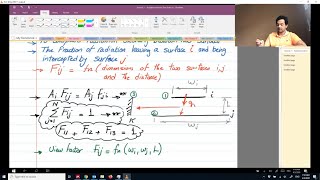 The fraction of radiation leaving a surface i and being
intercepted by surface j
Fij = fn ( dimensions of the two surfaces i, j
and the distance )
Ai Fij = Aj Fji → **
Σ Fij = 1 → **
j=1
F11 + F12 + F13 = 1
View factor Fij = fn (wi, wj, L)
wi
① i
q1
L
②
wj j
③
K